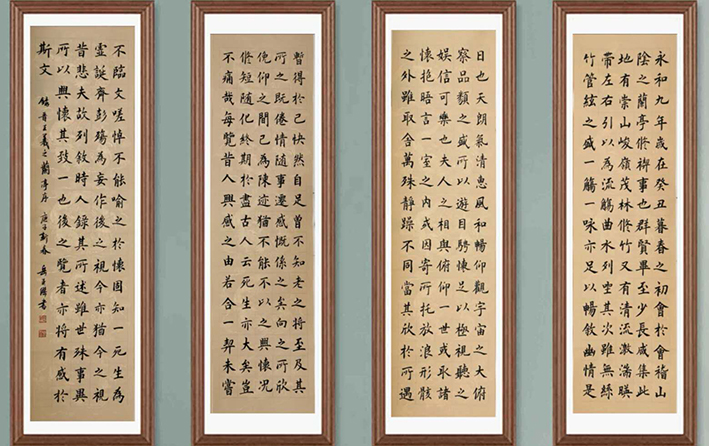 永和九年歲在癸丑暮春之初會於會稽山
陰之蘭亭修禊事也群賢畢至少長咸集此
地有崇山峻嶺茂林修竹又有清流激湍暎
帶左右引以為流觴曲水列坐其次雖無絲
竹管絃之盛一觴一咏亦足以暢敘幽情是
日也天朗氣清惠風和暢仰觀宇宙之大俯
察品類之盛所以遊目騁懷足以極視聽之
娛信可樂也夫人之相與俯仰一世或取諸
懷抱晤言一室之內或因寄所托放浪形骸
之外雖取舍萬殊靜躁不同當其欣於所遇
暫得於己怏然自足曾不知老之將至及其
所之既倦情隨事遷感慨係之矣向之所欣
俛仰之間已為陳迹猶不能不以之興懷況
修短隨化終期於盡古人云死生亦大矣豈
不痛哉每覽昔人興感之由若合一契未嘗
不臨文嗟悼不能喻之於懷固知一死生為
虛誕齊彭殤為妄作後之視今亦猶今之視
昔悲夫故列敘時人錄其所述雖世殊事異
所以興懷其致一也後之覽者亦將有感於
斯文 錄晉王羲之蘭亭序 庚子新春 書